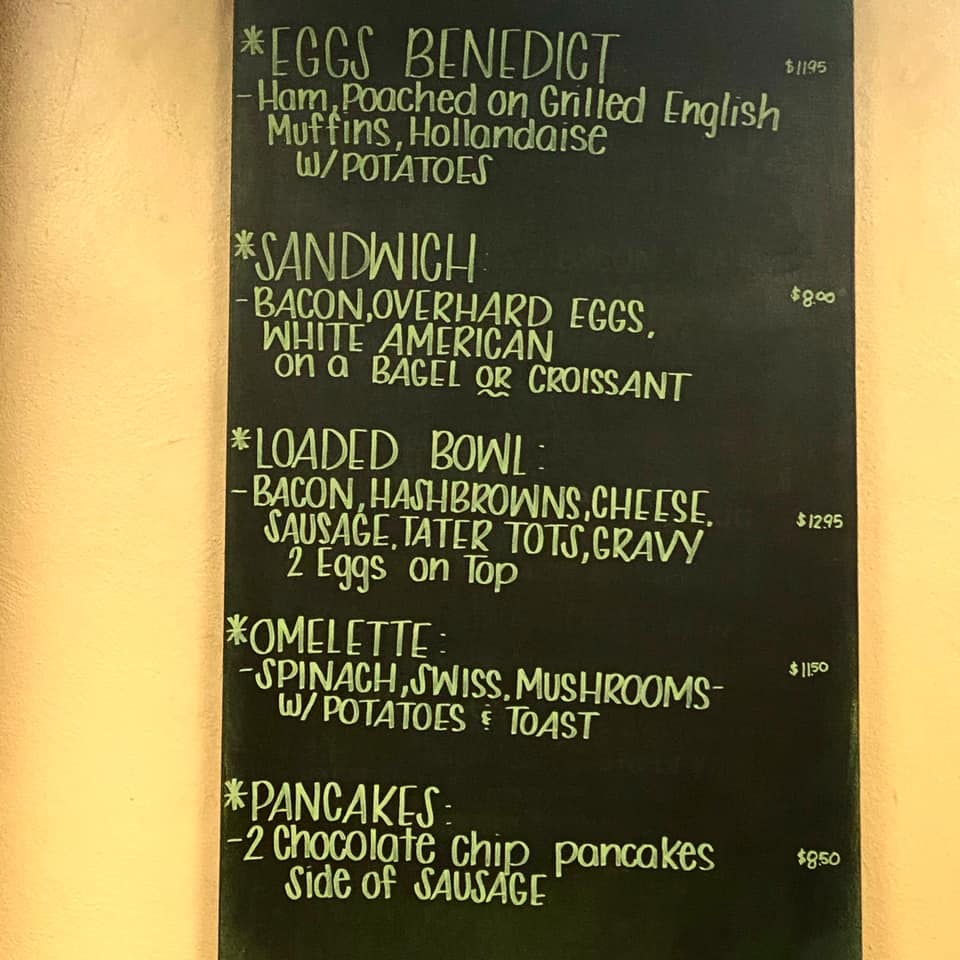 *EGGS BENEDICT $11.95
-Ham, Poached on Grilled English
Muffins, Hollandaise
W/ POTATOES
*SANDWICH:
-BACON, OVERHARD EGGS, $8.00
WHITE AMERICAN
on a BAGEL OR CROISSANT
*LOADED BOWL:
-BACON, HASHBROWNS, CHEESE,
SAUSAGE, TATER TOTS, GRAVY $12.95
2 Eggs on Top
*OMELETTE:
-SPINACH, SWISS, MUSHROOMS- $11.50
W/ POTATOES & TOAST
*PANCAKES:
-2 Chocolate Chip pancakes $8.50
side of SAUSAGE